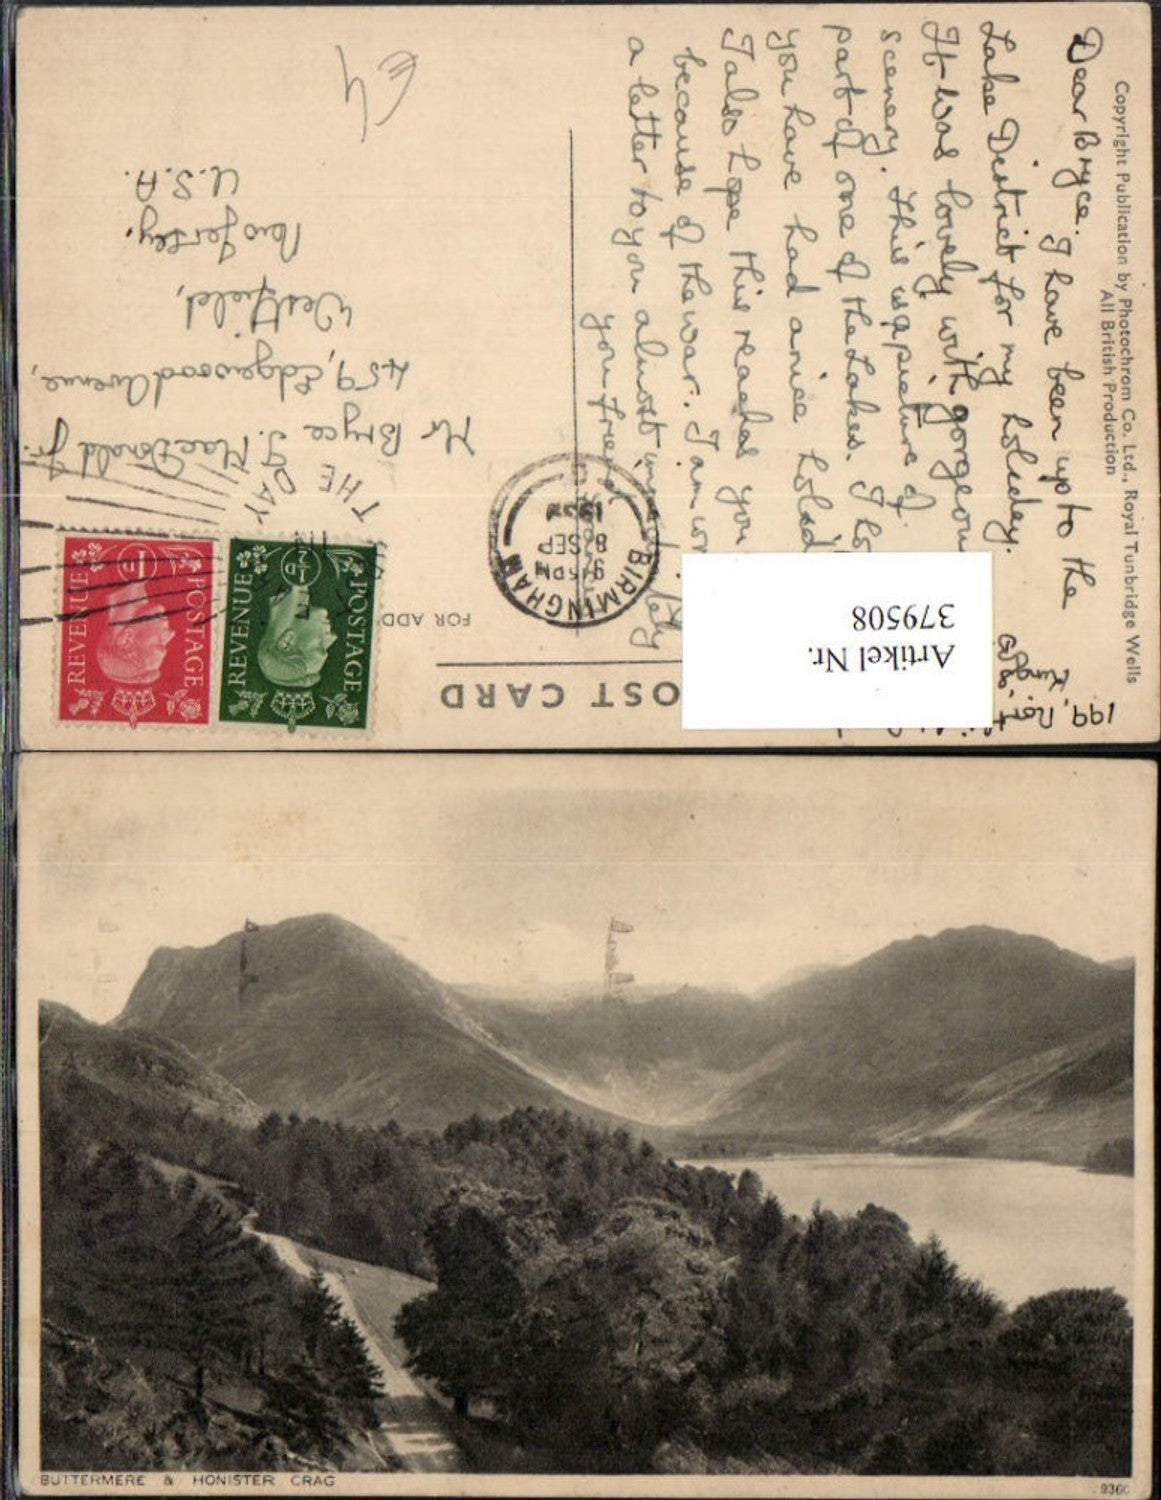 Copyright Publication by Photochrom Co. Ltd., Royal Tunbridge Wells
All British Production
199,
Dear Bryce. I have been up to the
Lake District for my holiday.
It was lovely with gorgeous
scenery. This is a picture of
part of one of the Lakes. I
you have had a nice
I also hope this reaches you
because of the war. I am
a letter to you almost
your friend
POST CARD
FOR ADD
BIRMINGHAM
9 45 PM
8 SEP
THE
Mr Bryce J. MacDonald Jr.
459, Edgewood Avenue,
Westfield,
New Jersey.
U.S.A.
POSTAGE
REVENUE
½D
POSTAGE
REVENUE
1D
Artikel Nr.
379508
BUTTERMERE & HONISTER CRAG